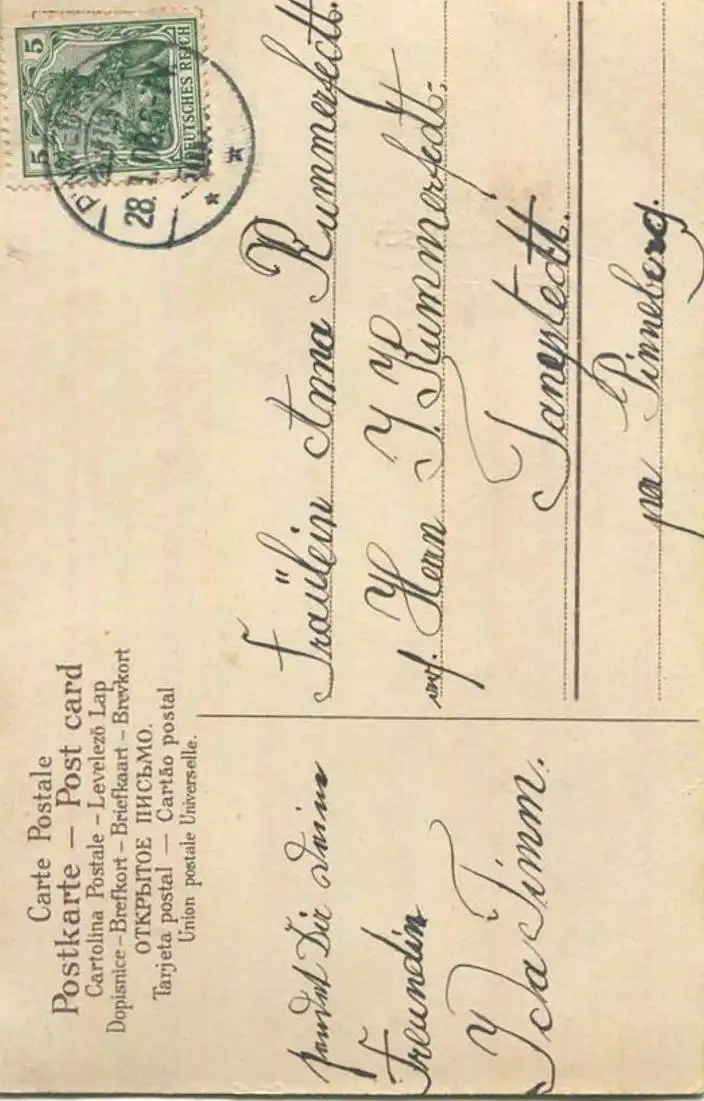 Carte Postale
Postkarte – Post card
Cartolina Postale – Levelező Lap
Dopisnice – Brefkort – Briefkaart – Brevkort
ОТКРЫТОЕ ПИСЬМО.
Tarjeta postal — Cartão postal
Union postale Universelle.
5
5
DEUTSCHES REICH
28.
sendet Dir deine
Freundin
Ida Timm.
Fräulein Anna Kummerfeldt.
Herrn J. Kummerfeldt.
Tangstedt.
Pinneberg.